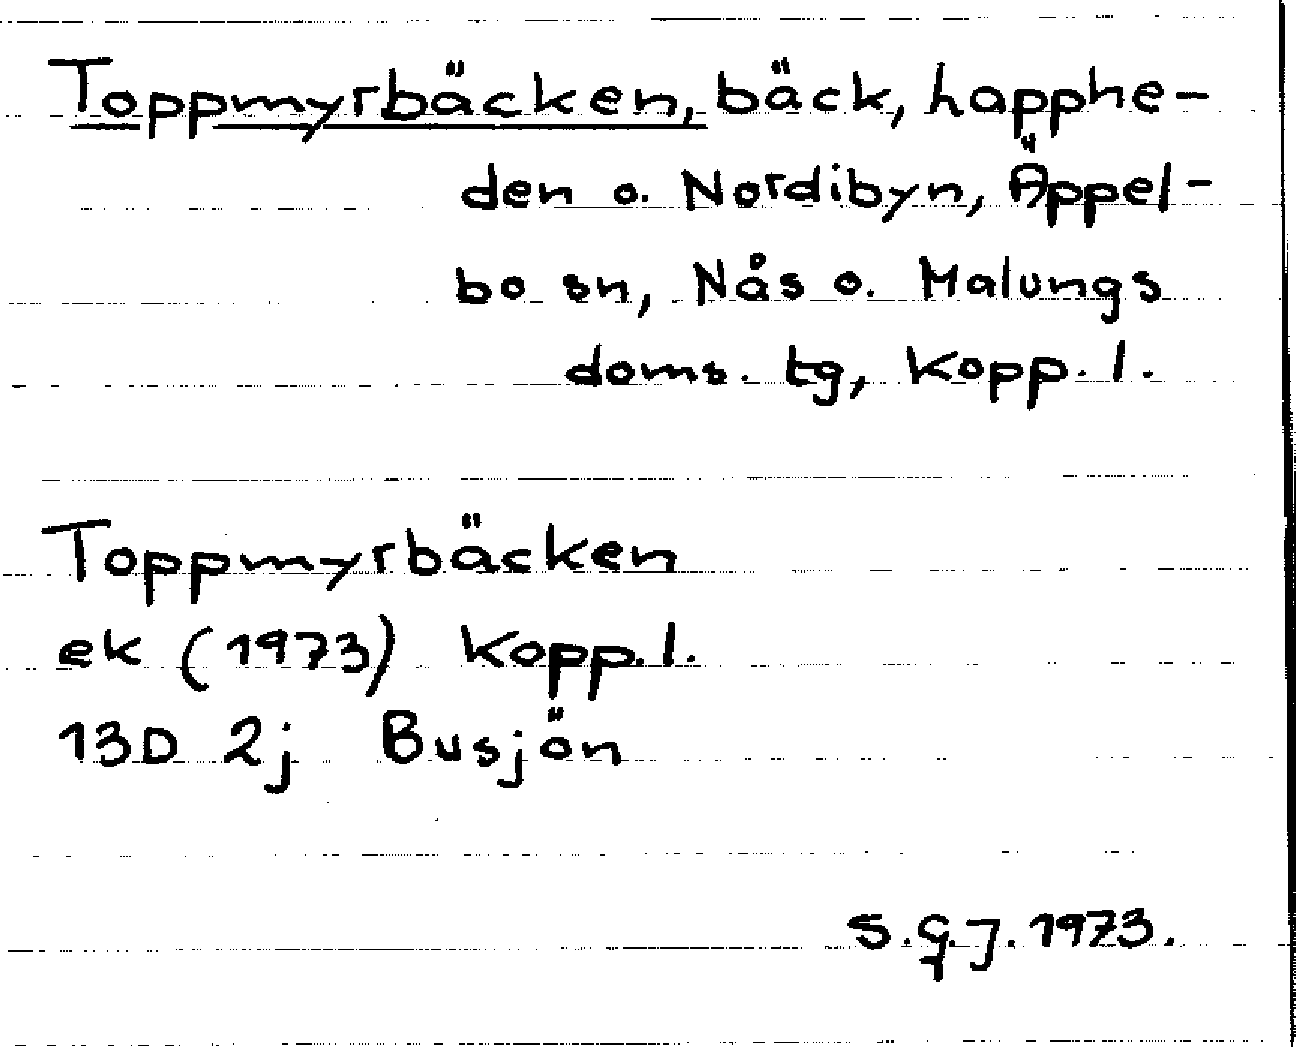 Toppmyrbäcken, bäck, happhe-
den o. Nordibyn, Äppel-
bo sn, Nås o. Malungs
doms. tg, Kopp. l.
Toppmyrbäcken
ek (1973) Kopp. l.
13D 2j Busjön
S.G.J. 1973.